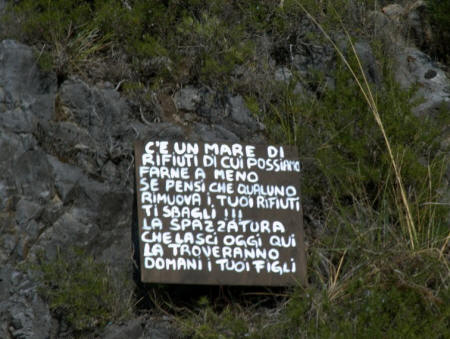 C'E UN MARE DI
RIFIUTI DI CUI POSSIAMO
FARNE A MENO
SE PENSI CHE QUALUNO
RIMUOVA I TUOI RIFIUTI
TI SBAGLI !!!
LA SPAZZATURA
CHE LASCI OGGI QUI
LA TROVERANNO
DOMANI I TUOI FIGLI